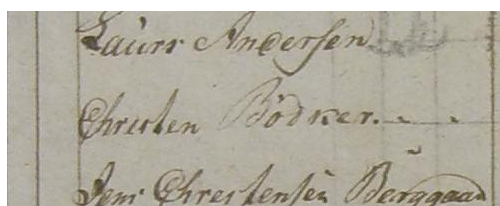 Laurs Andersen
Christen Bödker.
Jens Christensen Berggaard